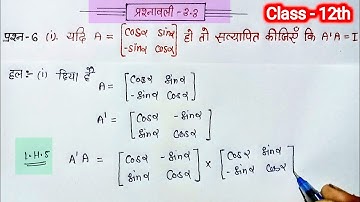 प्रश्नावली - 3.3
Class - 12th
प्रश्न-6 (i). यदि A = [cosα sinα -sinα cosα] हो तो सत्यापित कीजिएँ कि A'A = I
हल:- (i) दिया है A = [cosα sinα -sinα cosα]
A' = [cosα -sinα sinα cosα]
L.H.S A'A = [cosα -sinα sinα cosα] × [cosα sinα -sinα cosα]